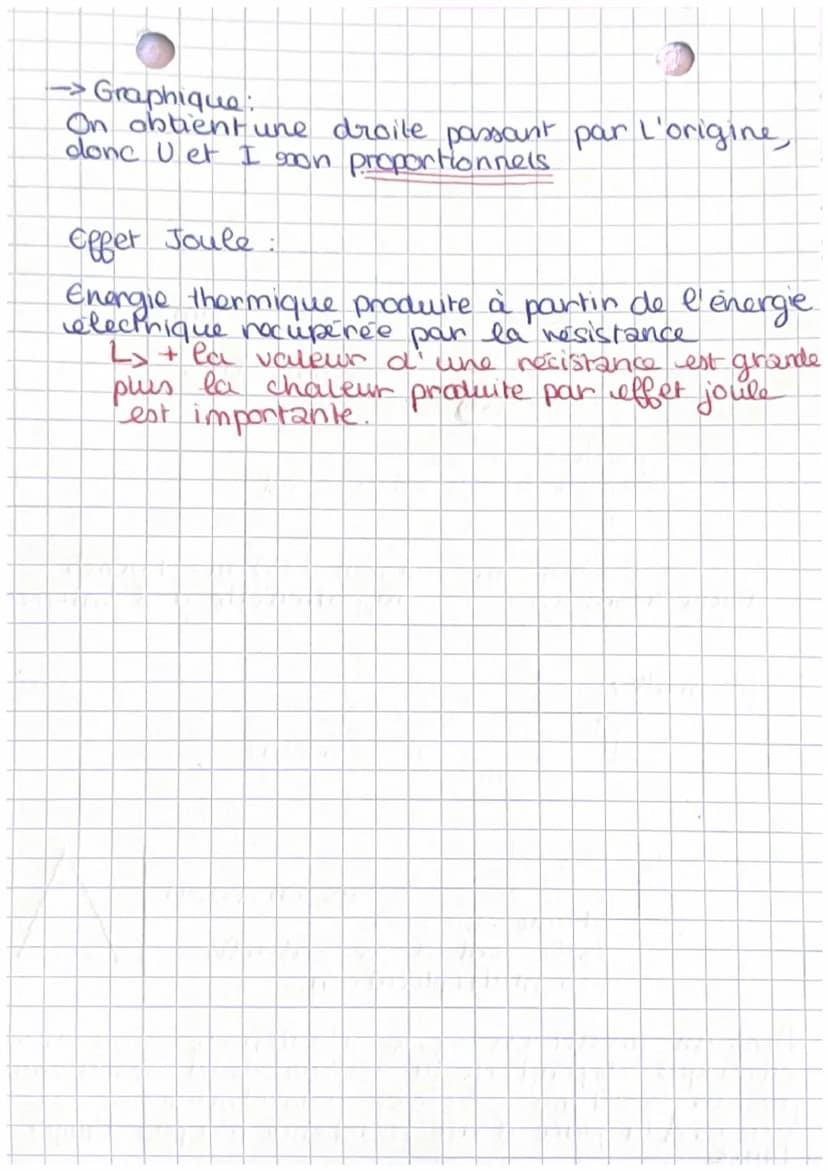 -> Graphique:
On obtient une droite passant par l'origine,
donc U et I soon proportionnels
Effet Joule :
Energie thermique produite à partir de l'énergie
électrique récupérée par la résistance
↳ + la valeur d'une récistance est grande
plus la chaleur produite par effet joule
est importante.